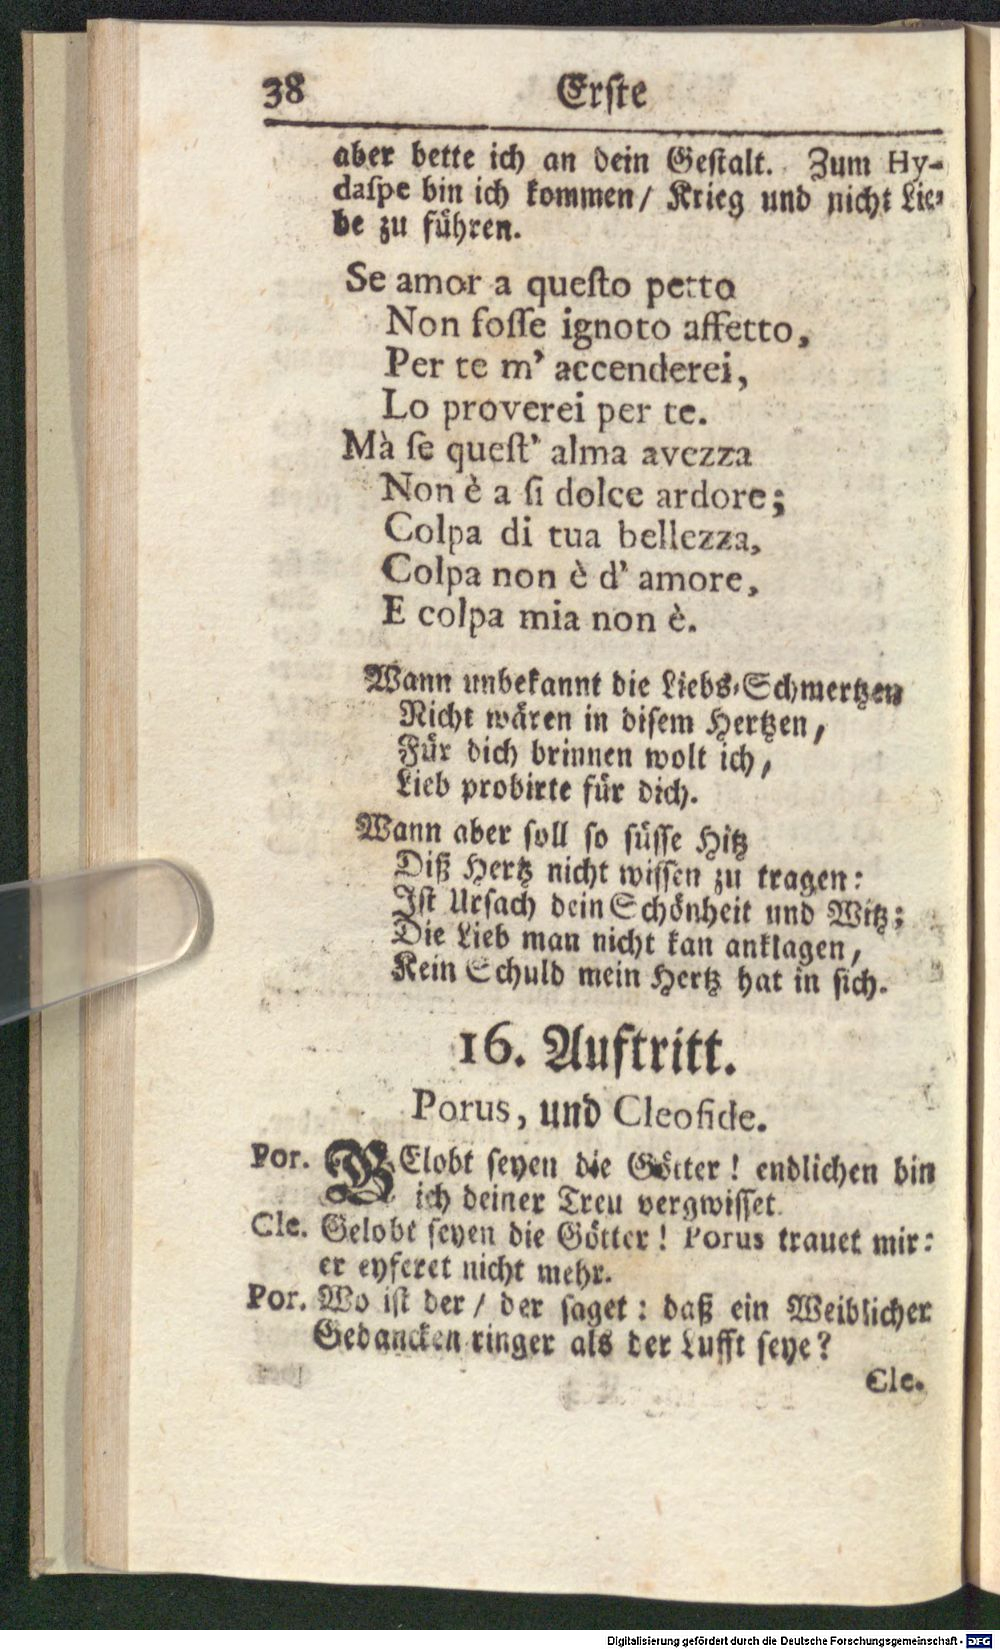 38 Erste
aber bette ich an dein Gestalt. Zum Hy-
daſpe bin ich kommen/ Krieg und nicht Lie-
be zu führen.
Se amor a queſto petto
Non foſſe ignoto affetto,
Per te m' accenderei,
Lo proverei per te.
Mà ſe queſt' alma avezza
Non è a ſi dolce ardore;
Colpa di tua bellezza,
Colpa non è d' amore,
E colpa mia non è.
Wann unbekannt die Liebs-Schmertzen
Nicht wären in diſem Hertzen,
Für dich brinnen wolt ich,
Lieb probirte für dich.
Wann aber ſoll ſo ſüſſe Hitz
Diß Hertz nicht wiſſen zu tragen:
Iſt Urſach dein Schönheit und Witz;
Die Lieb man nicht kan anklagen,
Kein Schuld mein Hertz hat in ſich.
16. Auftritt.
Porus, und Cleoſide.
Por. GElobt ſeyen die Götter! endlichen bin
ich deiner Treu vergwiſſet.
Cle. Gelobt ſeyen die Götter! Porus trauet mir:
er eyferet nicht mehr.
Por. Wo iſt der/ der ſaget: daß ein Weiblicher
Gedancken ringer als der Lufft ſeye?
Cle.
Digitalisierung gefördert durch die Deutsche Forschungsgemeinschaft - DFG